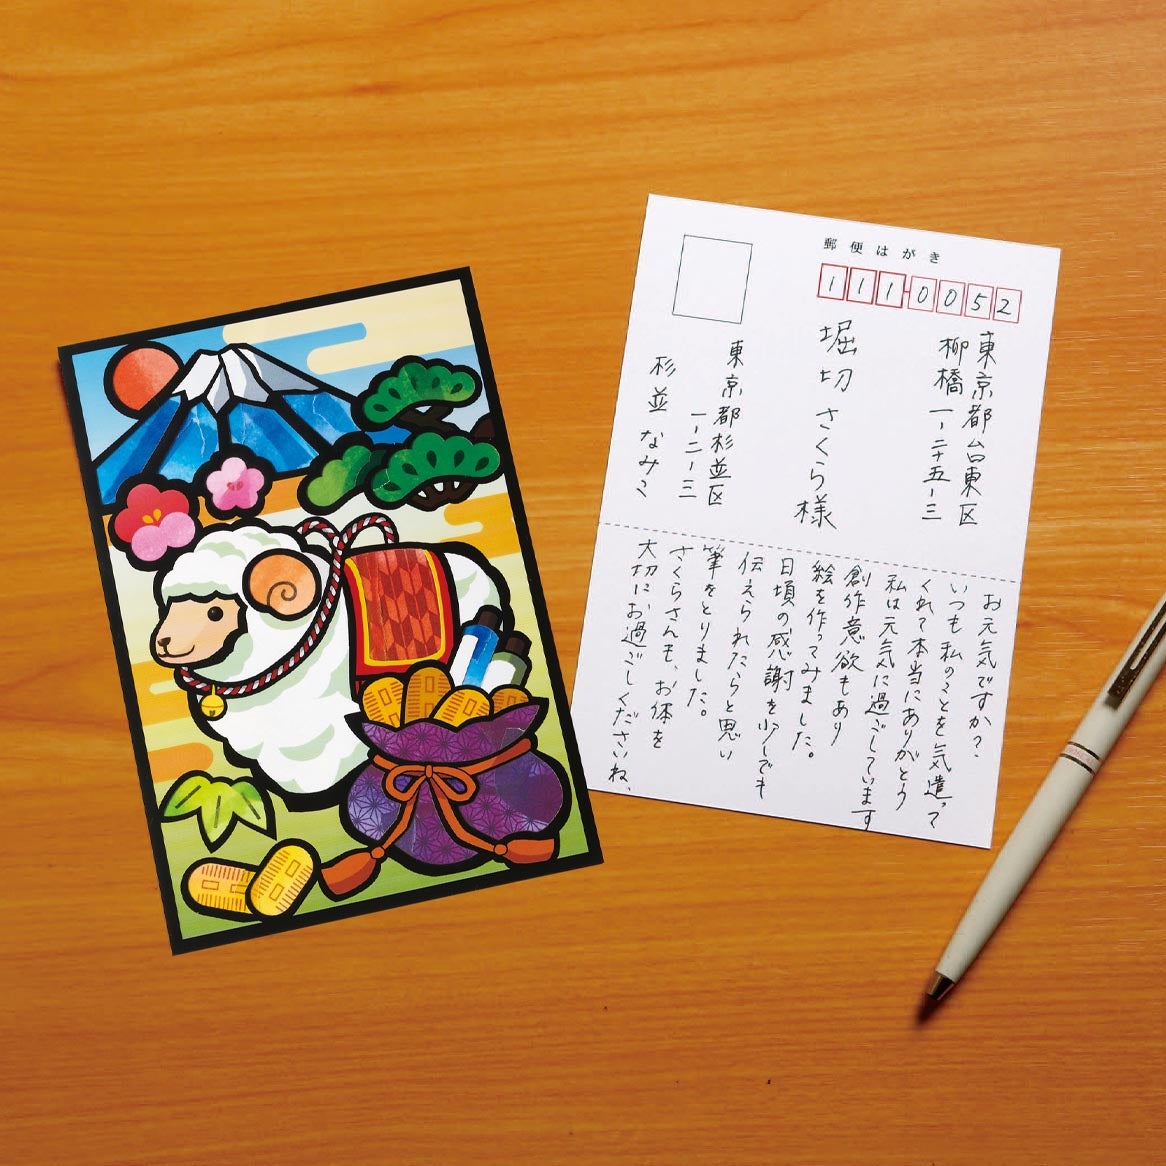 郵便はがき
111-0052
東京都台東区
柳橋一-二十五-三
堀切さくら様
東京都杉並区
一-二-三
杉並なみこ
お元気ですか？
いつも私のことを気遣って
くれて本当にありがとう
私は元気に過ごしています
創作意欲もあり
絵を作ってみました。
日頃の感謝を少しでも
伝えられたらと思い
筆をとりました。
さくらさんも、お体を
大切にお過ごしくださいね、